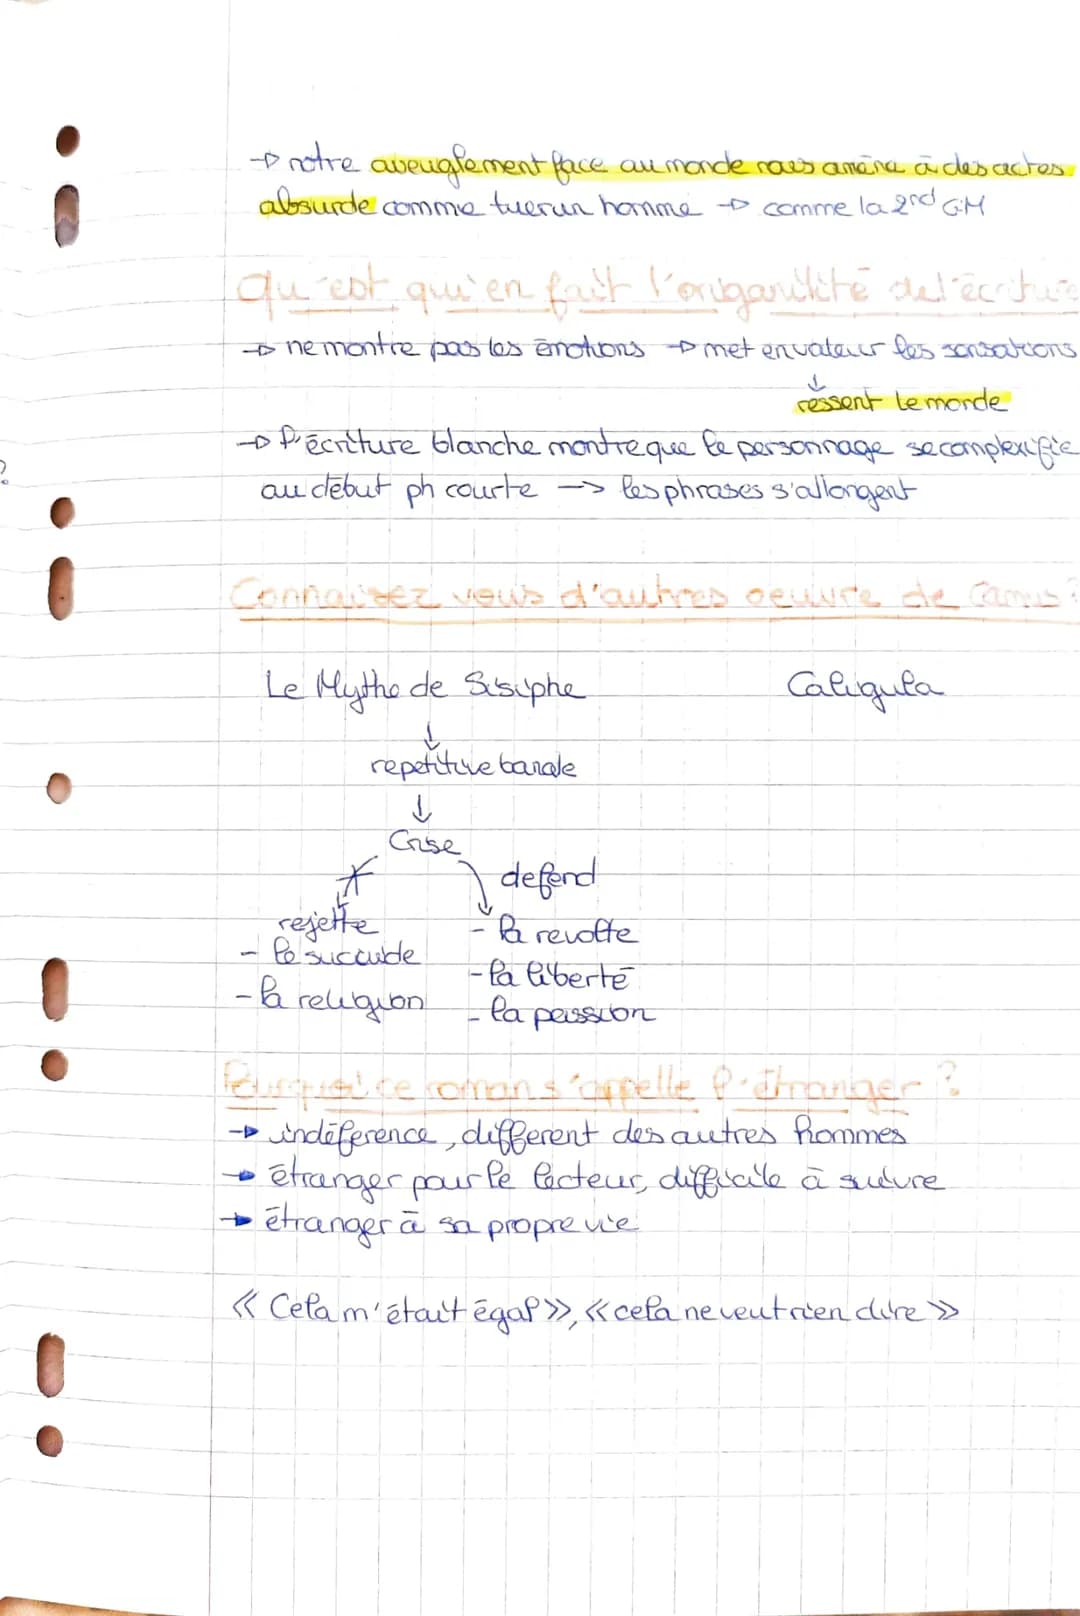 → notre aveuglement face au monde nous amène à des actes
absurde comme tuer un homme → comme la 2nd GM
Qu'est qu'en fait l'origanilité de l'écriture
→ ne montre pas les émotions → met en valeur les sensations
↓
ressent le monde
→ l'écriture blanche montre que le personnage se complexifie
?
au début ph courte → les phrases s'allongent
Connaisez vous d'autres oeuvre de Camus ?
Le Mythe de Sisiphe Caligula
↓
repetitive banale
↓
Crise
defend
rejette - la revolte
- le succuide
- la liberté
- la religion
- la passion
Pourquoi ce roman s'appelle l'étranger ?
→ indéference, different des autres hommes
→ étranger pour le lecteur, difficile à suivre
→ étranger à sa propre vie
« Cela m'était égal », « cela ne veut rien dire »